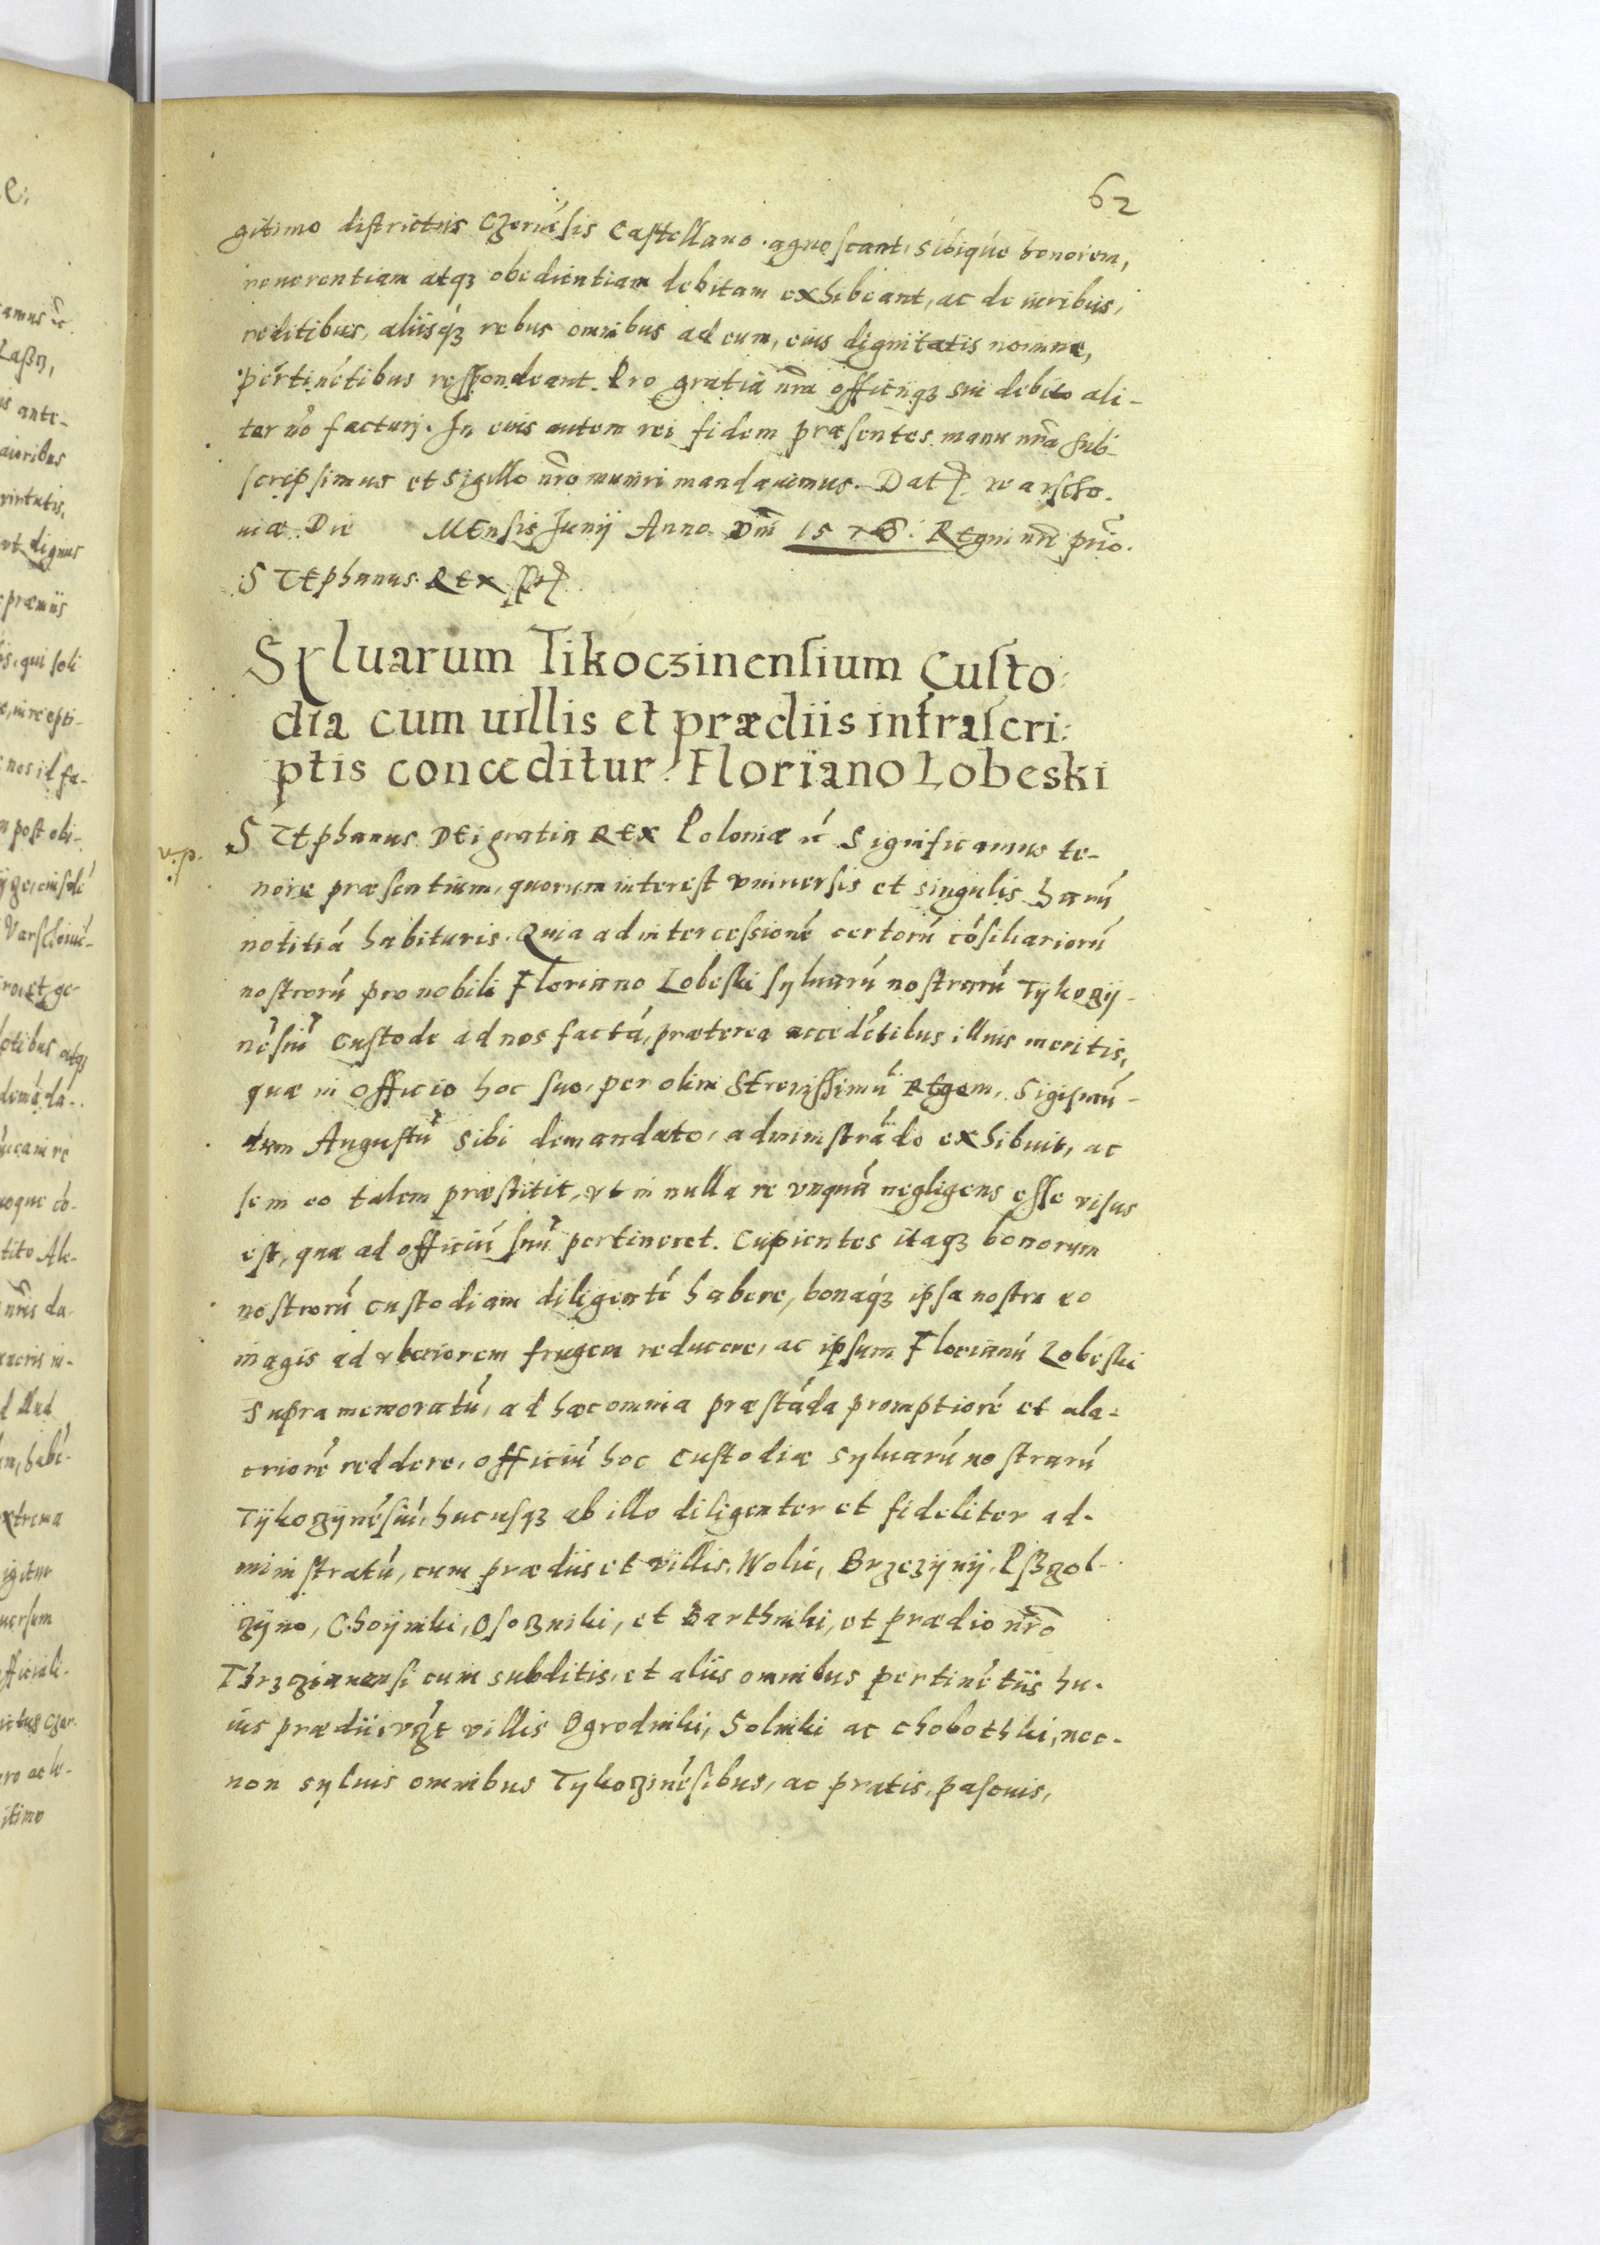 62
gitimo districtus Czernésis Castellano agnoscant, sibique honorem,
reuerentiam atqꝫ obedientiam debitam exhibeant, ac de iuribus,
reditibus, aliisqꝫ rebus omnibus ad eum, eius dignitatis nomine,
pertinétibus respondeant. Pro gratia nr̃a officiiqꝫ sui debito ali-
ter nõ facturj. In cuius autem rei fidem præsentes manu nr̃a sub-
scripsimus et sigillo nr̃o muniri mandauimus. Dat. Warscho-
uiæ Die Mensis Junij Anno Dm̃ 1576. Regni nr̃i primo.
Stephanus Rex
Syluarum Tikoczinensium Custo:
dia cum uillis et prædiis infrascri:
ptis conceditur Floriano Lobeski
v.p.
Stephanus Dei gratia Rex Poloniæ Significamus te-
nore præsentium, quorum interest vniuersis et singulis harú
notitiá habituris. Quia ad intercessioné certorú cósiliariorú
nostrorú pro nobili Floriano Lobeski syluarú nostrarú Tÿkozÿ-
nésiú custode ad nos factá, præterea accedétibus illius meritis,
quæ in officio hoc suo, per olim Serenissimú Regem, Sigismú-
dum Augustú sibi demandato, administrádo exhibuit, ac
sem eo talem præstitit, vt in nulla re vnquá negligens esse visus
est, quæ ad officiú suú pertineret. Cupientes itaqꝫ bonorum
nostrorú custodiam diligenté habere, bonaqꝫ ipsa nostra eo
magis ad vberiorem frugem reducere, ac ipsum Florianú Lobeski
supramemoratú, ad hæc omnia præstáda promptioré et ala-
crioré reddere, officiú hoc custodiæ syluarú nostrarú
Tÿkozÿnésiú, hucusqꝫ ab illo diligenter et fideliter ad-
ministratú, cum prædiis et villis, Wolie, Brzezÿnÿ, Psczol-
zÿno, Choÿniki, Osozniki, et Barthniki, et prædio nr̃o
Thrzczianensi cum subditis, et aliis omnibus pertinétiis hu-
ius prædii villis Ogrodniki, Solniki ac Chobothki, nec-
non syluis omnibus Tykozinésibus, ac pratis, pascuis,